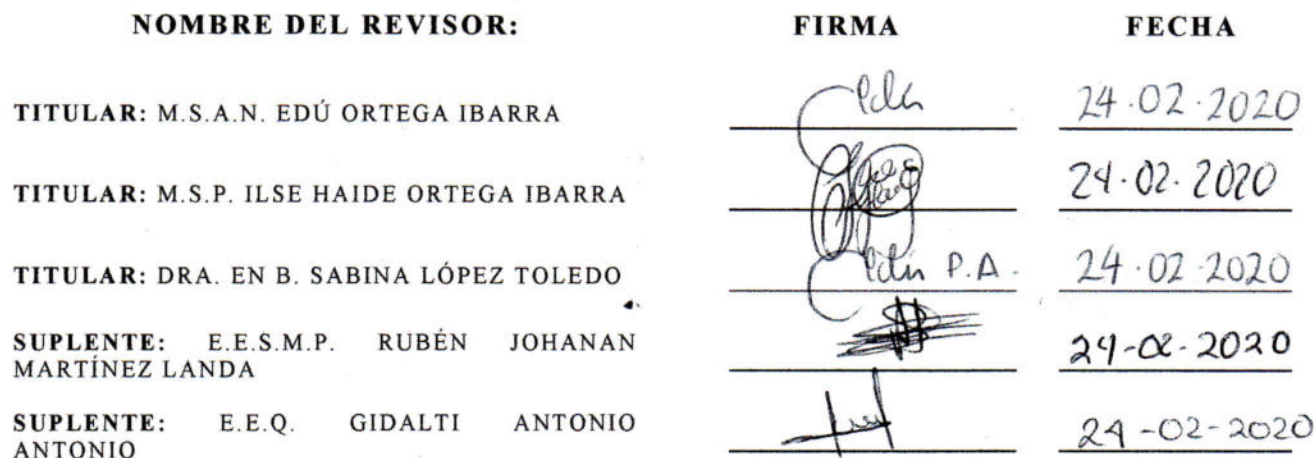 NOMBRE DEL REVISOR: FIRMA FECHA
TITULAR: M.S.A.N. EDÚ ORTEGA IBARRA Edú 24.02.2020
TITULAR: M.S.P. ILSE HAIDE ORTEGA IBARRA 24.02.2020
TITULAR: DRA. EN B. SABINA LÓPEZ TOLEDO Edú P.A. 24.02.2020
SUPLENTE: E.E.S.M.P. RUBÉN JOHANAN
MARTÍNEZ LANDA 24-02-2020
SUPLENTE: E.E.Q. GIDALTI ANTONIO
ANTONIO 24-02-2020